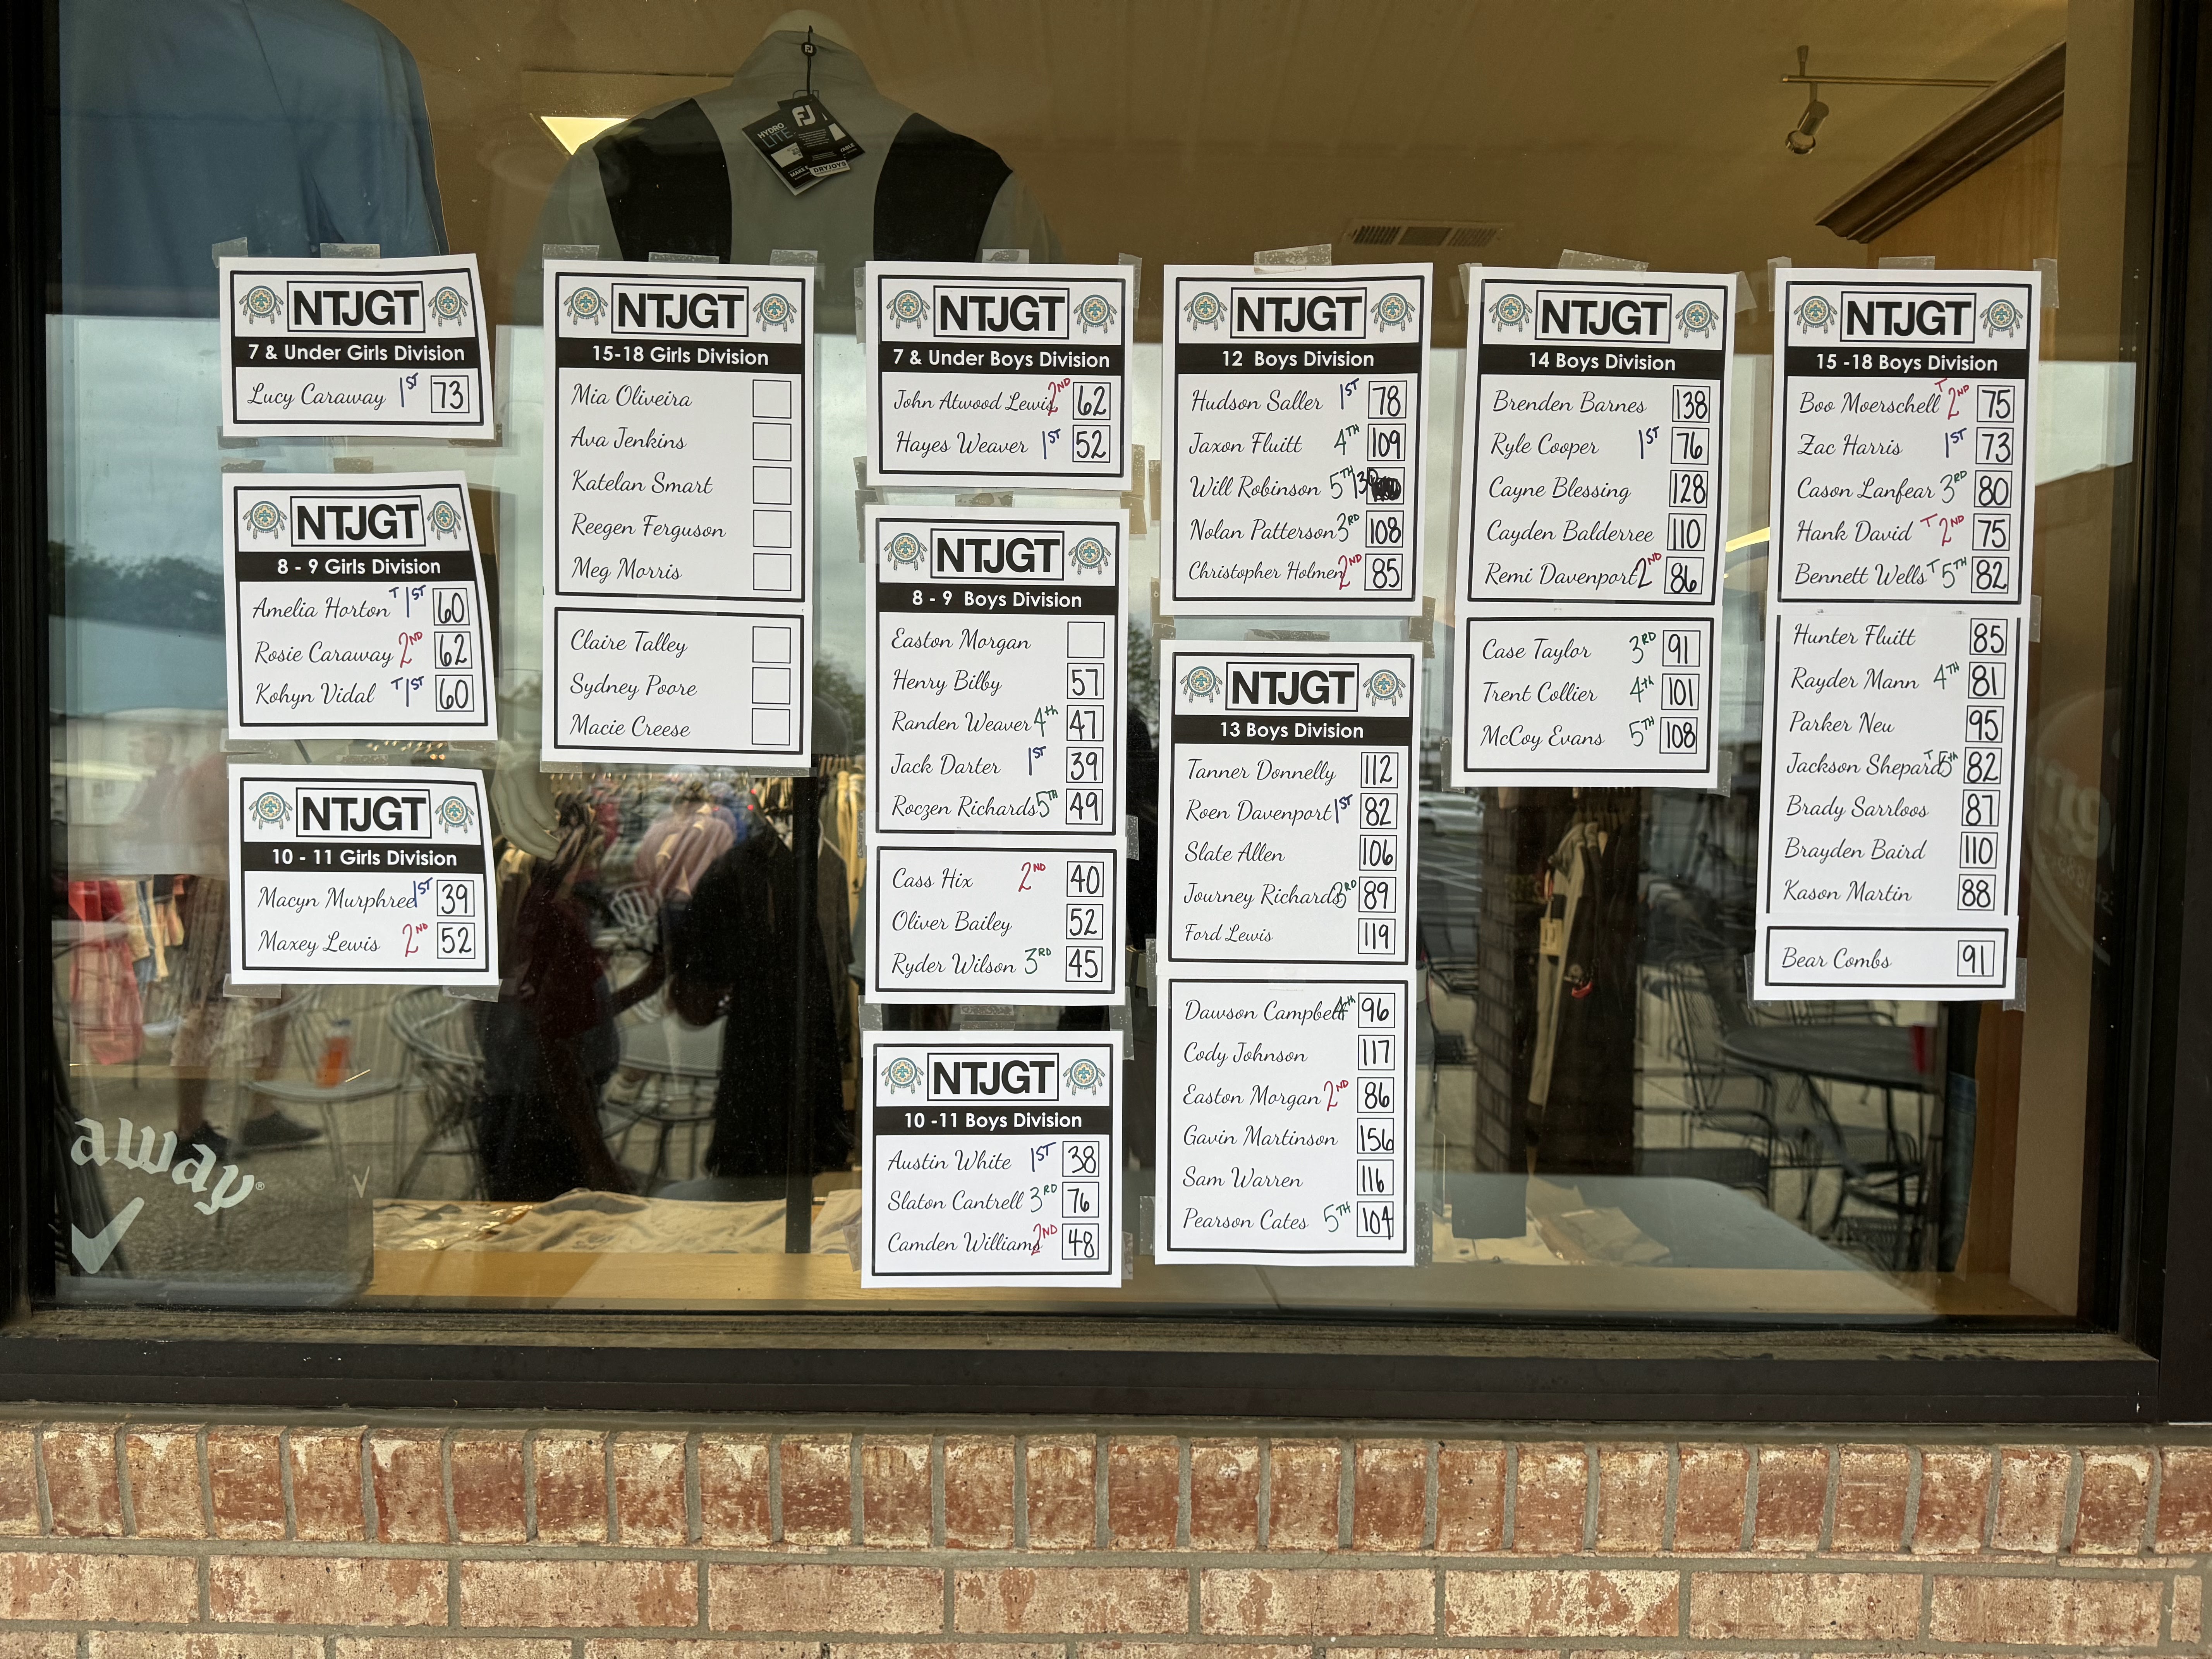 FJ
HYDRO
LITE
DRYJOYS
NTJGT
7 & Under Girls Division
Lucy Caraway 1ST 73
NTJGT
8 - 9 Girls Division
Amelia Horton T 1ST 60
Rosie Caraway 2ND 62
Kohyn Vidal T 1ST 60
NTJGT
10 - 11 Girls Division
Macyn Murphree 1ST 39
Maxey Lewis 2ND 52
NTJGT
15-18 Girls Division
Mia Oliveira
Ava Jenkins
Katelan Smart
Reegen Ferguson
Meg Morris
Claire Talley
Sydney Poore
Macie Creese
NTJGT
7 & Under Boys Division
John Atwood Lewis 2ND 62
Hayes Weaver 1ST 52
NTJGT
8 - 9 Boys Division
Easton Morgan
Henry Bilby 57
Randen Weaver 4th 47
Jack Darter 1ST 39
Roczen Richards 5TH 49
Cass Hix 2ND 40
Oliver Bailey 52
Ryder Wilson 3RD 45
NTJGT
10 -11 Boys Division
Austin White 1ST 38
Slaton Cantrell 3RD 76
Camden Williams 2ND 48
NTJGT
12 Boys Division
Hudson Saller 1ST 78
Jaxon Fluitt 4TH 109
Will Robinson 5TH
Nolan Patterson 3RD 108
Christopher Holmen 2ND 85
NTJGT
13 Boys Division
Tanner Donnelly 112
Roen Davenport 1ST 82
Slate Allen 106
Journey Richards 3RD 89
Ford Lewis 119
Dawson Campbell 4th 96
Cody Johnson 117
Easton Morgan 2ND 86
Gavin Martinson 156
Sam Warren 116
Pearson Cates 5TH 104
NTJGT
14 Boys Division
Brenden Barnes 138
Ryle Cooper 1ST 76
Cayne Blessing 128
Cayden Balderree 110
Remi Davenport 2ND 86
Case Taylor 3RD 91
Trent Collier 4th 101
McCoy Evans 5TH 108
NTJGT
15 -18 Boys Division
Boo Moerschell T 2ND 75
Zac Harris 1ST 73
Cason Lanfear 3RD 80
Hank David T 2ND 75
Bennett Wells T 5TH 82
Hunter Fluitt 85
Rayder Mann 4TH 81
Parker Neu 95
Jackson Shepard T 5th 82
Brady Sarrloos 87
Brayden Baird 110
Kason Martin 88
Bear Combs 91
away®